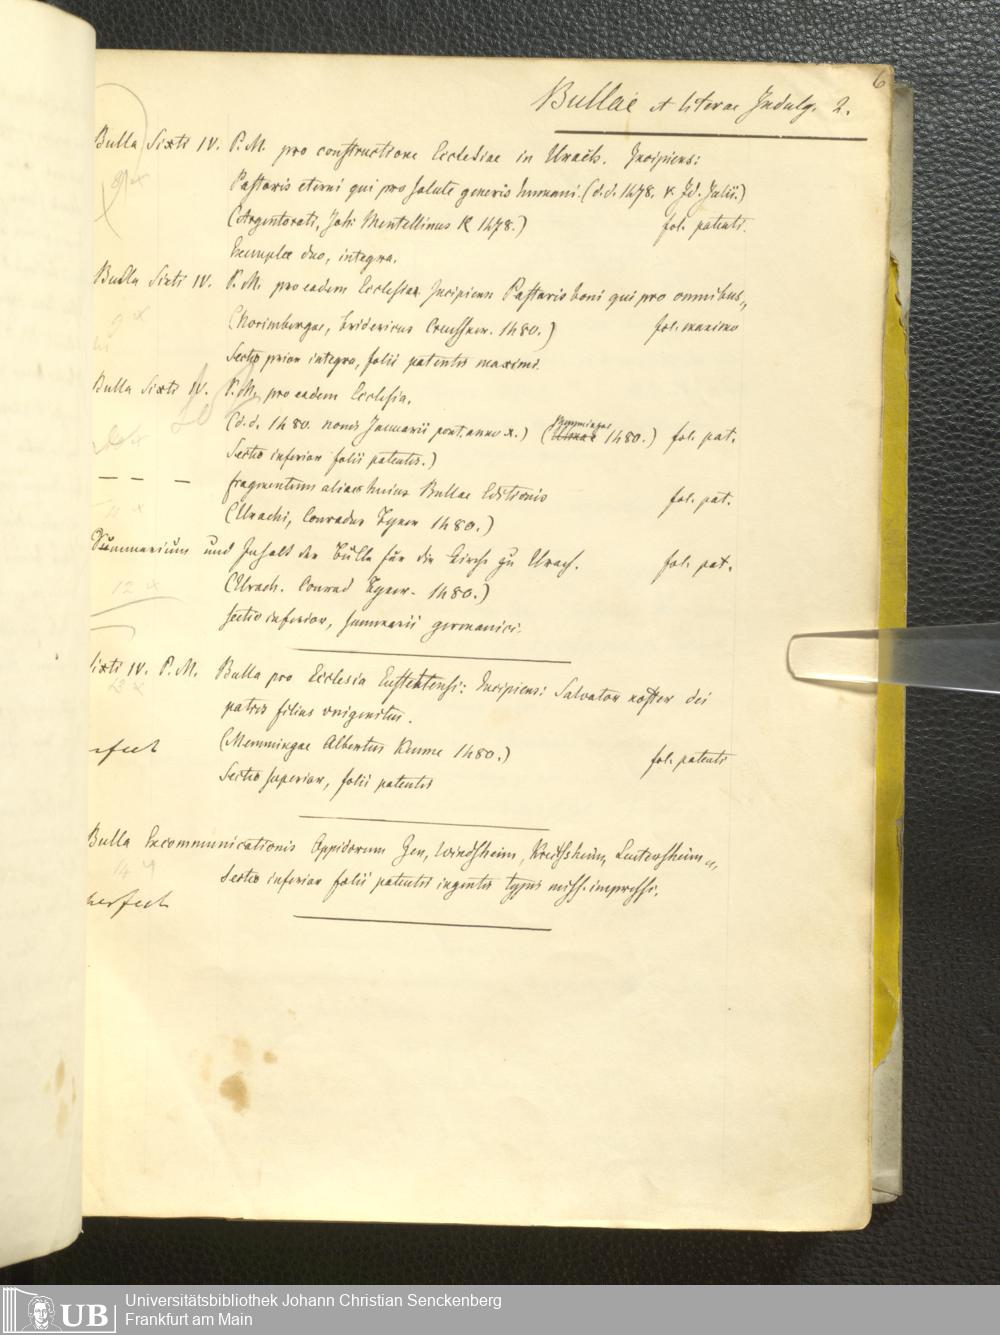 6
Bullae et literae Indulg. 2.
Bulla Sixti IV. P. M. pro constructione Ecclesiae in Urach. Incipiens:
9 x
Pastoris eterni qui pro salute generis humani. (d. d. 1478. V. Id. Julii.)
(Argentorati, Joh. Mentellinus 1478.) fol. patenti.
Exempla duo, integra.
Bulla Sixti IV. P. M. pro eadem Ecclesia Incipiens Pastoris boni qui pro omnibus
9 x
(Norimbergae, Fridericus Creussner. 1480.) fol. maximo
Sectio prior integra, folii patentis maximi.
Bulla Sixti IV. P. M. pro eadem Ecclesia.
(d. d. 1480. nonis Januarii pont. anno X.) (Memmingae 1480.) fol. pat.
Sectio inferior folii patentis.)
— — — fragmentum aliae huius Bullae Editionis fol. pat.
11 x
(Urachi, Conradus Fyner 1480.)
Summarium und Inhalt der Bulle für die Kirche zu Urach. fol. pat.
12 x
(Urach. Conrad Fyner. 1480.)
sectio inferior, summarii germanici.
Sixti IV. P. M. Bulla pro Ecclesia Eustettensi: Incipiens: Salvator noster dei
13 x
patris filius unigenitus.
(Memmingae Albertus Kunne 1480.) fol. patenti
Sectio superior, folii patentis
Bulla Excommunicationis Oppidorum Gen, Windsheim, Leutersheim
14
Sectio inferior folii patentis ingentis typis miss. impressi.
UB
Universitätsbibliothek Johann Christian Senckenberg
Frankfurt am Main